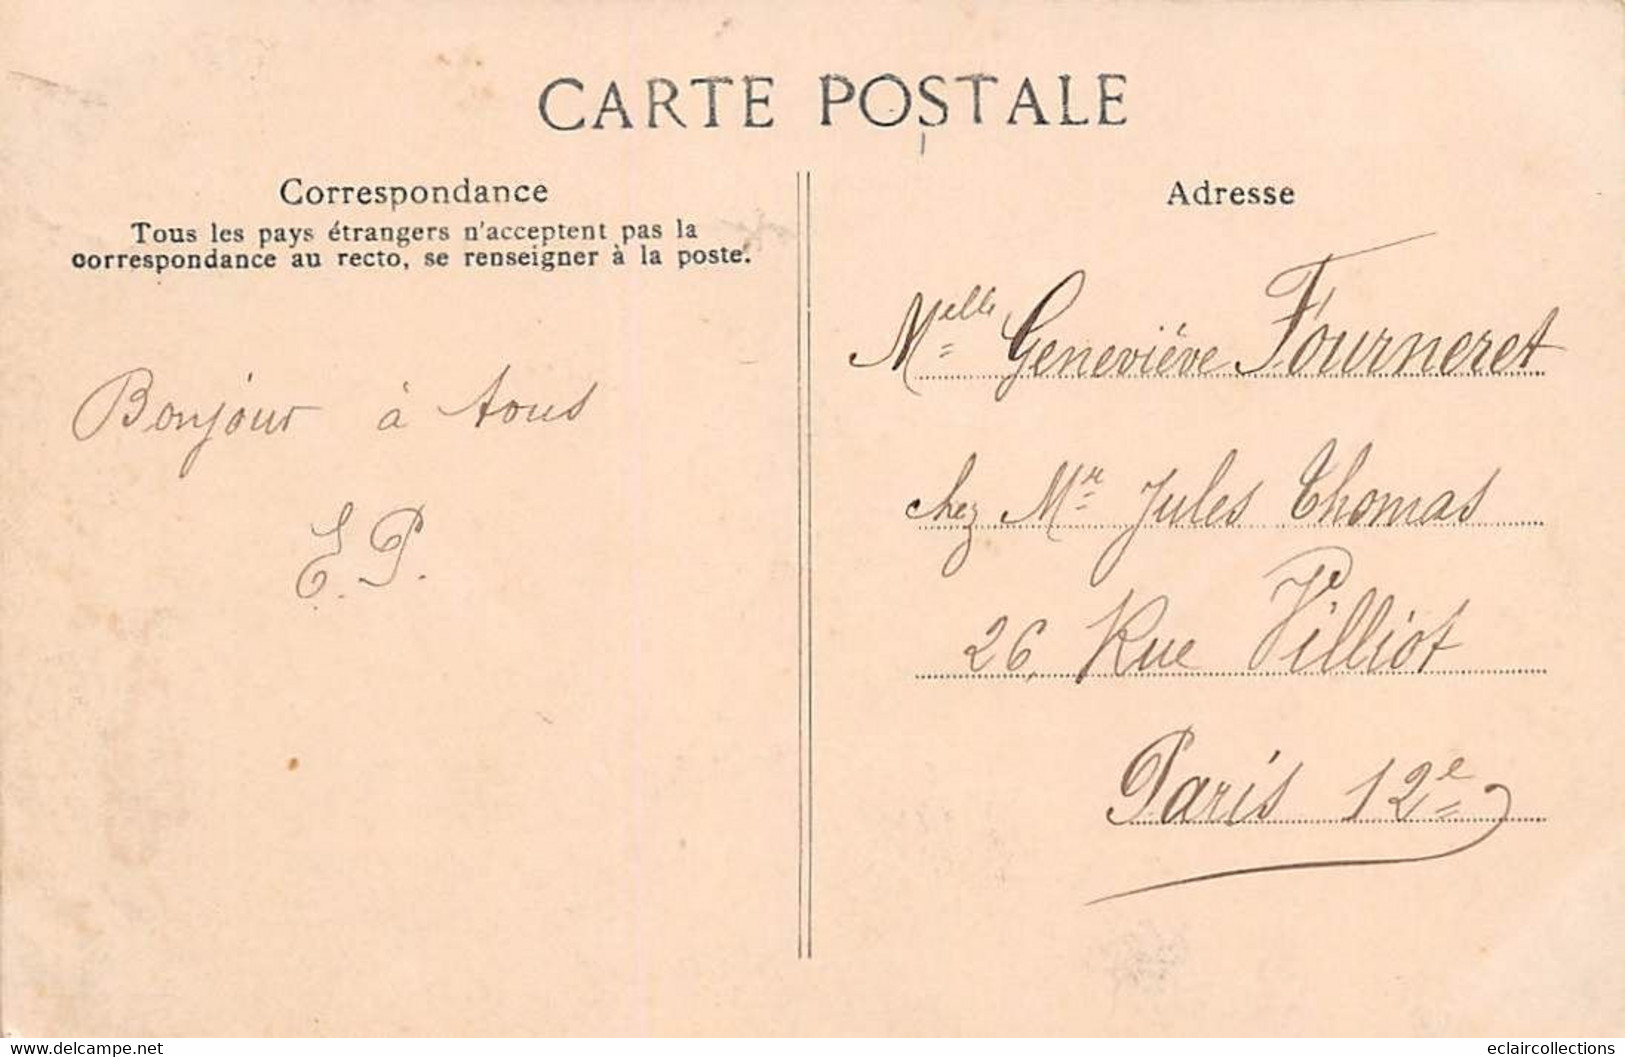 CARTE POSTALE
Correspondance
Tous les pays étrangers n'acceptent pas la
correspondance au recto, se renseigner à la poste.
Bonjour à tous
E. P.
Adresse
Melle Geneviève Fourneret
chez Mr Jules Thomas
26, Rue Villiot
Paris 12e
https://www.delcampe.net
eclaircollections